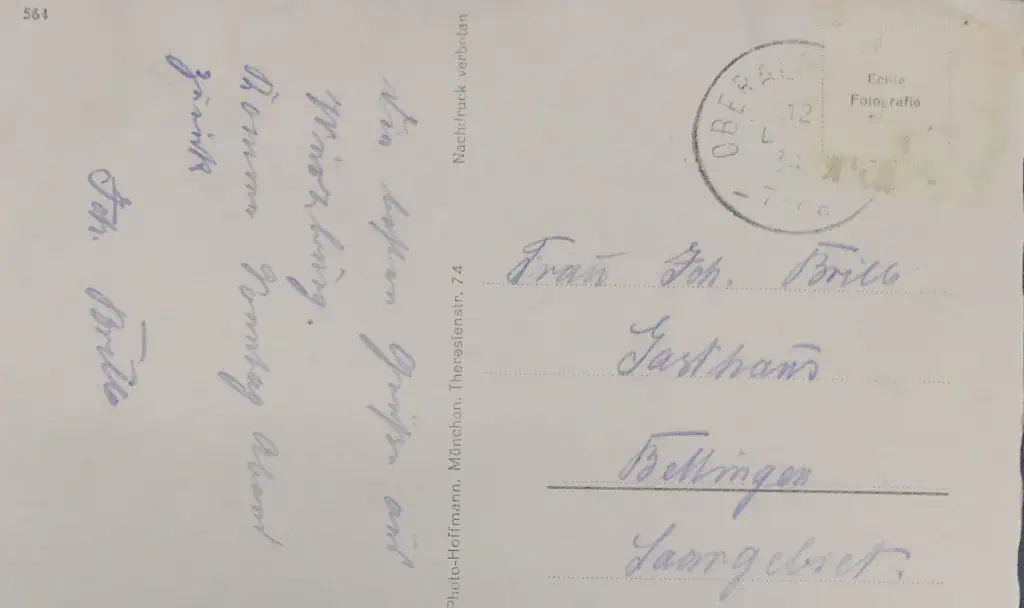 564
Die besten Grüße aus
Würzburg.
Komme Sonntag Abend
zurück
Joh. Brill
Photo-Hoffmann, München, Theresienstr. 74
Nachdruck verboten
12
Echte
Fotografie
Frau Joh. Brill
Gasthaus
Bettingen
Saargebiet.